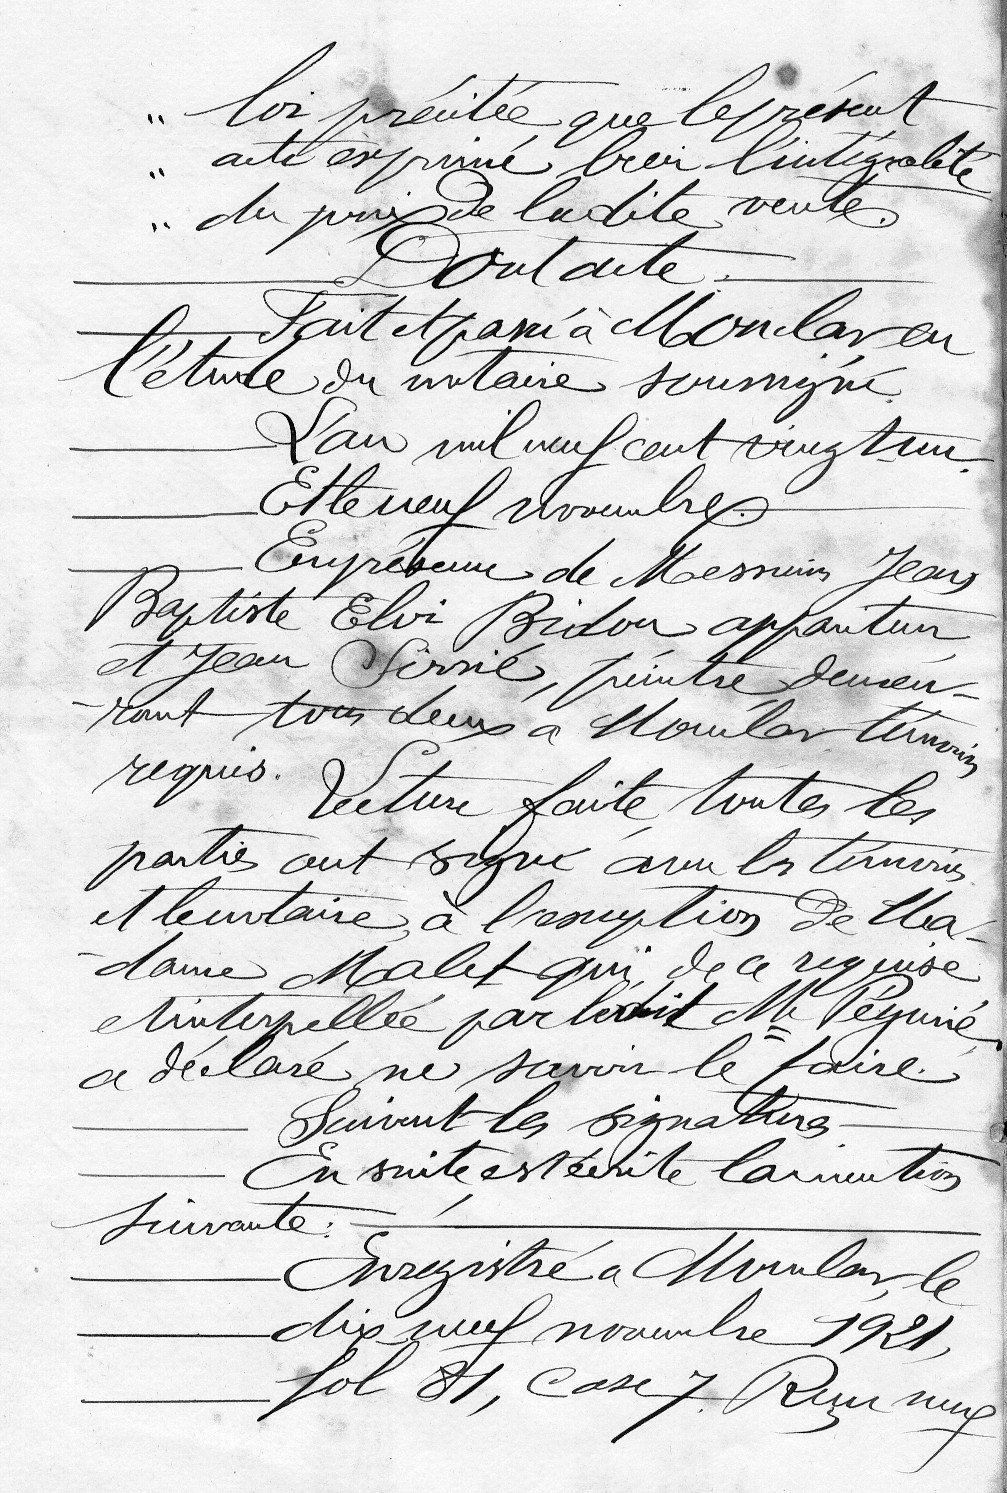 " loi précitée que le présent
" acte exprime bien l'intégralité
" du prix de ladite vente.
Dont acte.
Fait et passé à Monclar en
l'étude du notaire soussigné.
L'an mil neuf cent vingt un.
Et le neuf novembre.
En présence de Messieurs Jean
Baptiste Elvi Bridou appariteur
et Jean Sirrié, peintre, demeu-
-rant tous deux a Monclar témoins
requis.
Lecture faite, toutes les
parties ont signé avec les témoins
et le notaire, à l'exception de Ma-
-dame Malet qui, de ce requise
et interpellée par ledit Me Pégurié,
a déclaré ne savoir le faire.
Suivent les signatures
En suite est écrite la mention
suivante:
Enregistré a Monclar, le
dix neuf novembre 1921,
fol 81, case 7. Reçu neuf